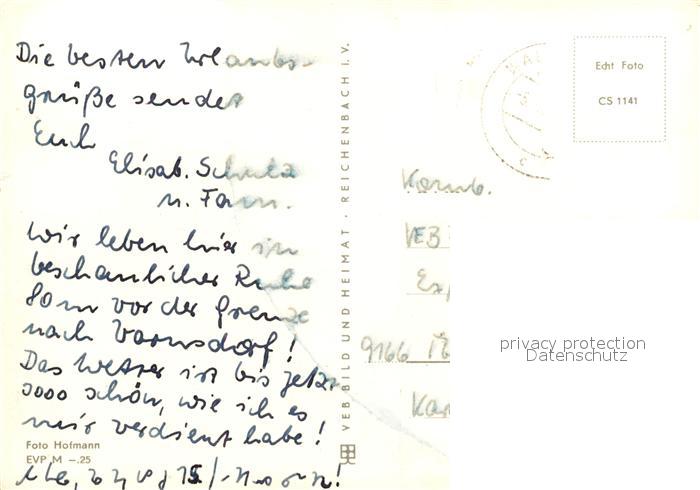 Die besten Urlaubs-
grüße sendet
Euch
Elisab. Schulz
u. Fam.
Wir leben hier in
beschaulicher Ruhe
80m vor der Grenze
nach Varnsdorf!
Das Wetter ist bis jetzt
sooo schön, wie ich es
mir verdient habe!
Foto Hofmann
EVP M –.25
VEB BILD UND HEIMAT · REICHENBACH I. V.
Echt Foto
CS 1141
Komb.
VEB
9166
privacy protection
Datenschutz